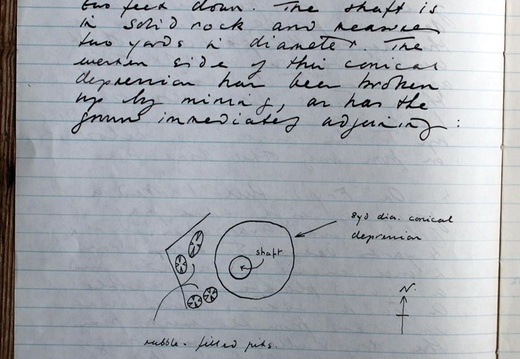 two feet down. The shaft is
in solid rock and measures
two yards in diameter. The
western side of this conical
depression has been broken
up by mining, as has the
ground immediately adjoining:
8yd dia. conical
depression
shaft
N
rubble-filled pits.